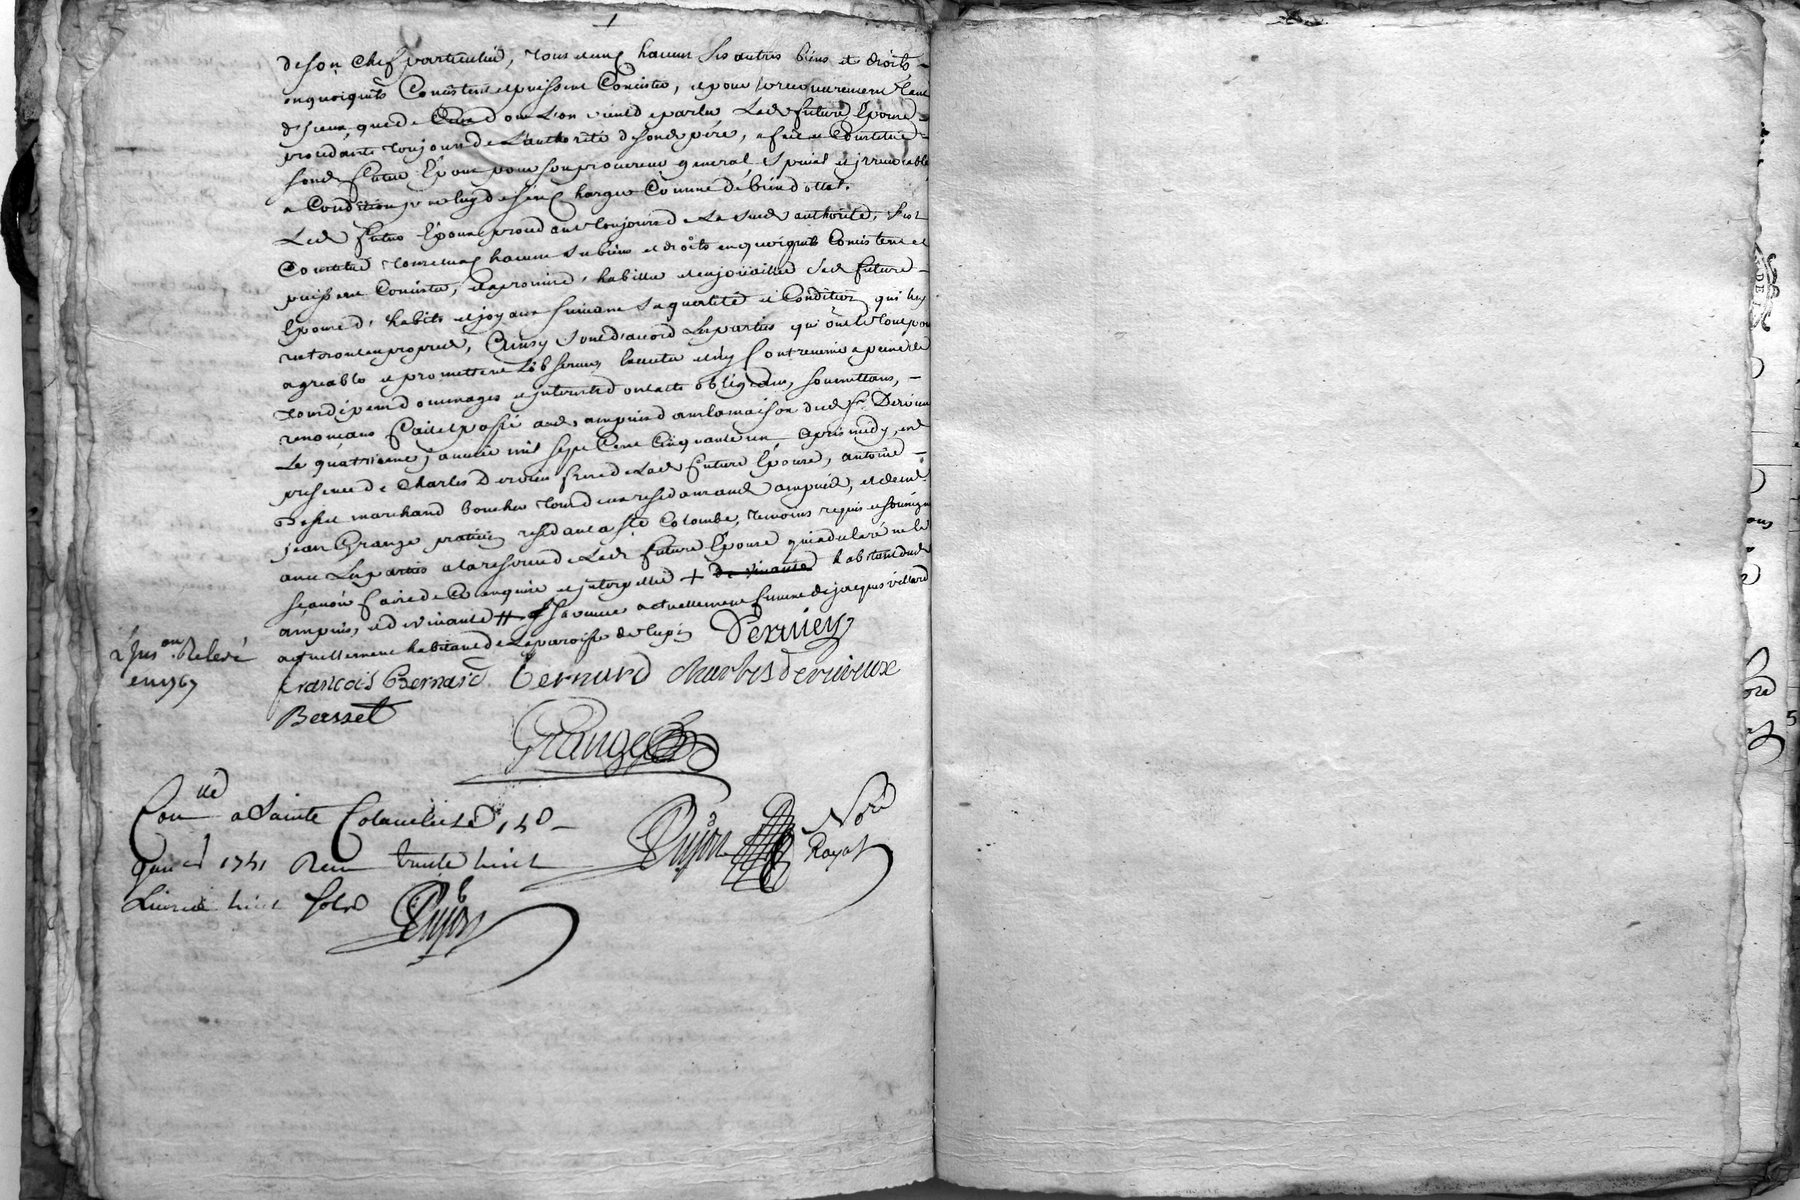 de son chef particulier, tous et uns chacuns ses autres biens et droits
en quoiqu'ils Consistent et puissent Consister, et pour le recouvrement tant
d'iceux que de dont l'on vient de parler Lade future Epouse
procedante toujours de L'authorité de sond pere, a fait et Constitué
sond futur Epoux pour son procureur general special et irrevocable
a Condition de Comme de bien dottal.
Led futur Epoux procedant toujours de La susd authorité, s'est
Constitué tous et uns chacuns ses biens et droits en quoiqu'ils Consistent et
puissent Consister, et a promis, habiller et enjoüailler lad future
Epouse d'habits et joyaux suivant sa qualité et Condition qui luy
resteront en propres, Ainsy sont d'acord Les parties qui ont le tout pour
agreable et promettent L'observer, et n'y Contrevenir a peine de
tous dépens dommages et interets dont acte obligeans, soumettans,
renonçans fait et passé aud ampuis dans la maison dud Sr Dervieu
Le quatrieme janvier mil sept Cent Cinquante un, apres midy, en
presence de Charles Dervieu frere de Lad future Epouse, antoine
Besset marchand boucher tous deux residants aud ampuis, et de Me
jean Grange praticien residant a Ste Colombe, temoins requis et soussignés
avec Les parties a la reserve de Lad future Epouse qui a declaré ne le
sçavoir faire de Ce enquise et interpellée + de vivante habitant dud
ampuis, et de vivante # Savanne actuellement femme de jacques villard
actuellement habitant de La paroisse de Lupé Dervieu
2e Expeson Relevé
en 1767
francois Bernard Bernard charles dervieux
Besset
Grange
Conllé a Sainte Colombe Led 14e
janer 1751 Reçu trente huit
Livres huit sols Dujon
Dujon Nore
Royal